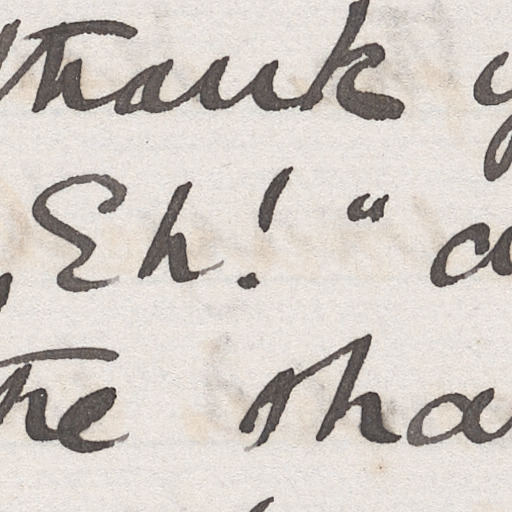 thank y
Eh!" a
the sha